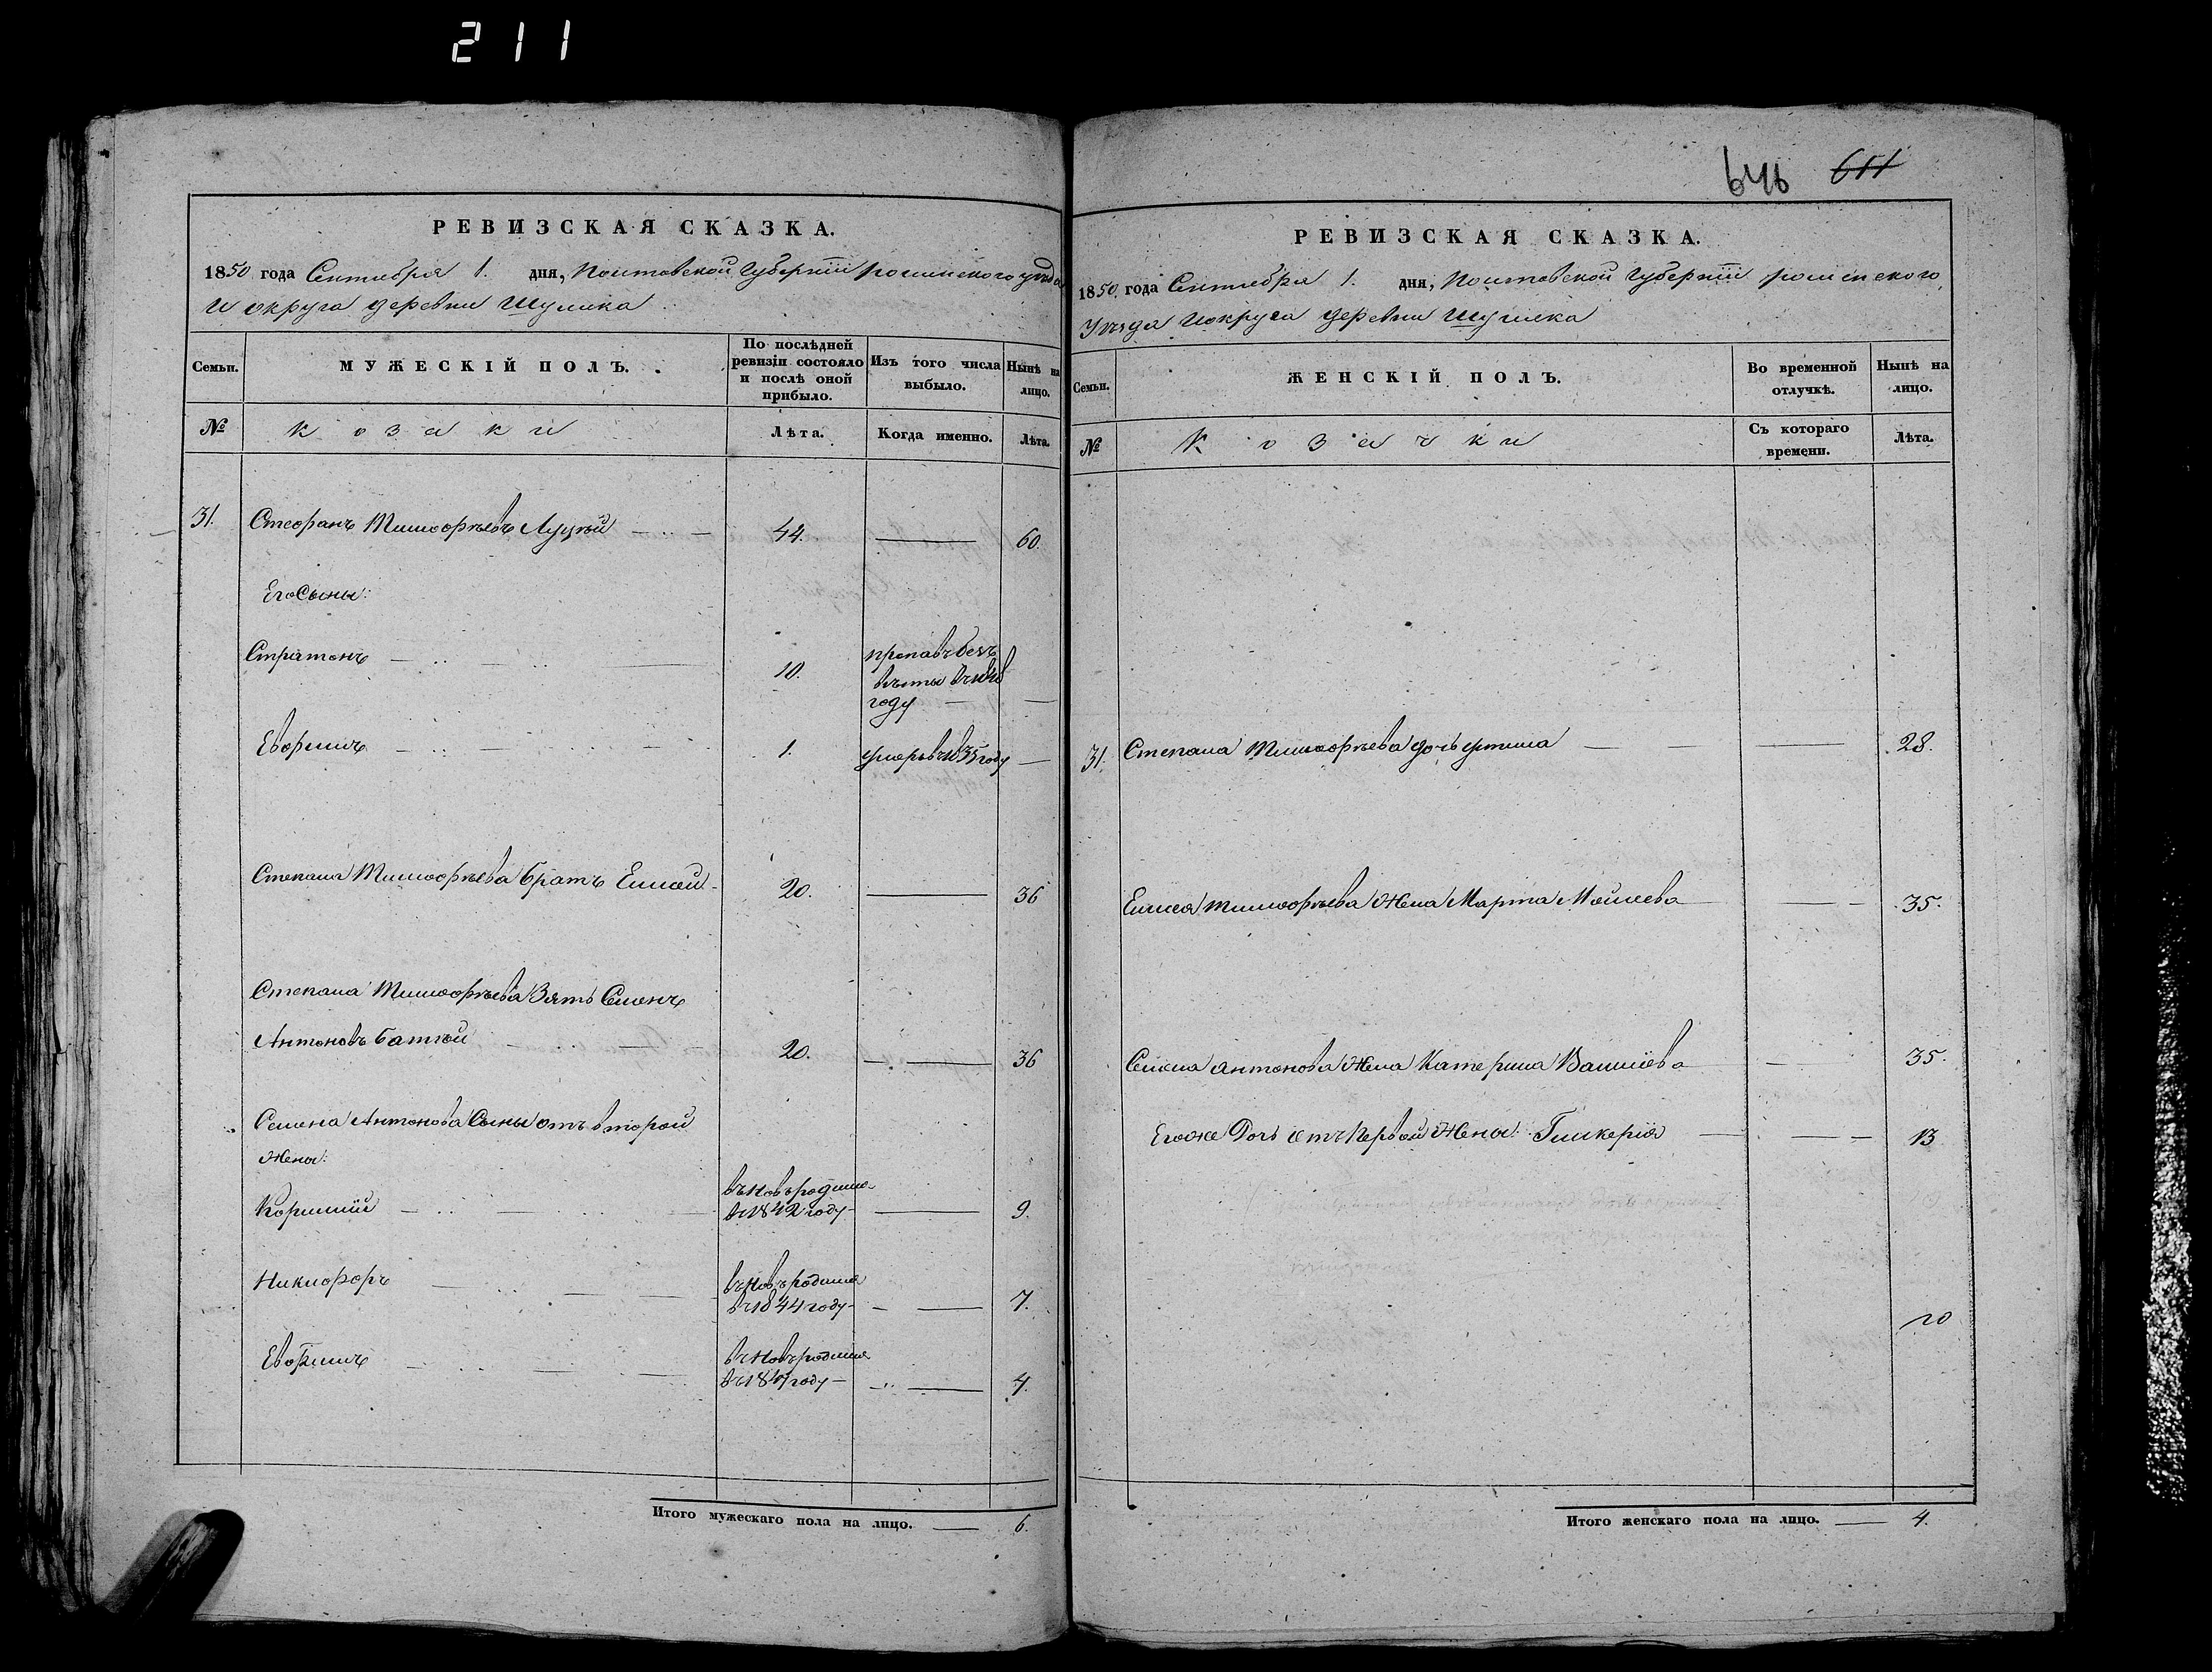 211
646 611
РЕВИЗСКАЯ СКАЗКА.
1850 года Сентября 1. дня, Полтавской Губерніи роменского уезда
и округа деревни Шумска
Семьи.
МУЖЕСКІЙ ПОЛЪ.
По послѣдней ревизіи состояло и послѣ оной прибыло.
Изъ того числа выбыло.
Нынѣ на лицо.
№
козаки
Лѣта.
Когда именно.
Лѣта.
31. Стефанъ Тимофѣевъ Луцкій 44. 60.
Его Сыны:
Стратонъ 10. пропавъ безъ
вѣсты въ 1848
году
Евфимъ 1. умеръ въ 1835 году
Степана Тимофѣева братъ Елисей 20. 36
Степана Тимофѣева Зять Семенъ
Антоновъ 20. 36
Семена Антонова Сыны отъ второй
жены:
Корнилій въновь родился
въ 1842 году 9.
Никифоръ въновъ родился
въ 1844 году 7.
Евфимъ въновъ родился
въ 1847 году 4.
Итого мужескаго пола на лицо. 6.
РЕВИЗСКАЯ СКАЗКА.
1850. года Сентября 1. дня, Полтавской Губерніи роменского
Уѣзда и округа деревни Шумска
Семьи.
ЖЕНСКІЙ ПОЛЪ.
Во временной отлучкѣ.
Нынѣ на лицо.
№
Козачки
Съ котораго времени.
Лѣта.
31. Степана Тимофѣева дочь устина 28.
Елисея тимофѣева жена Марта Моисеева 35.
Семена антонова жена Катерина Василіева 35.
Егоже Дочь отъ Первой жены: Гликерія 13
Итого женскаго пола на лицо. 4.